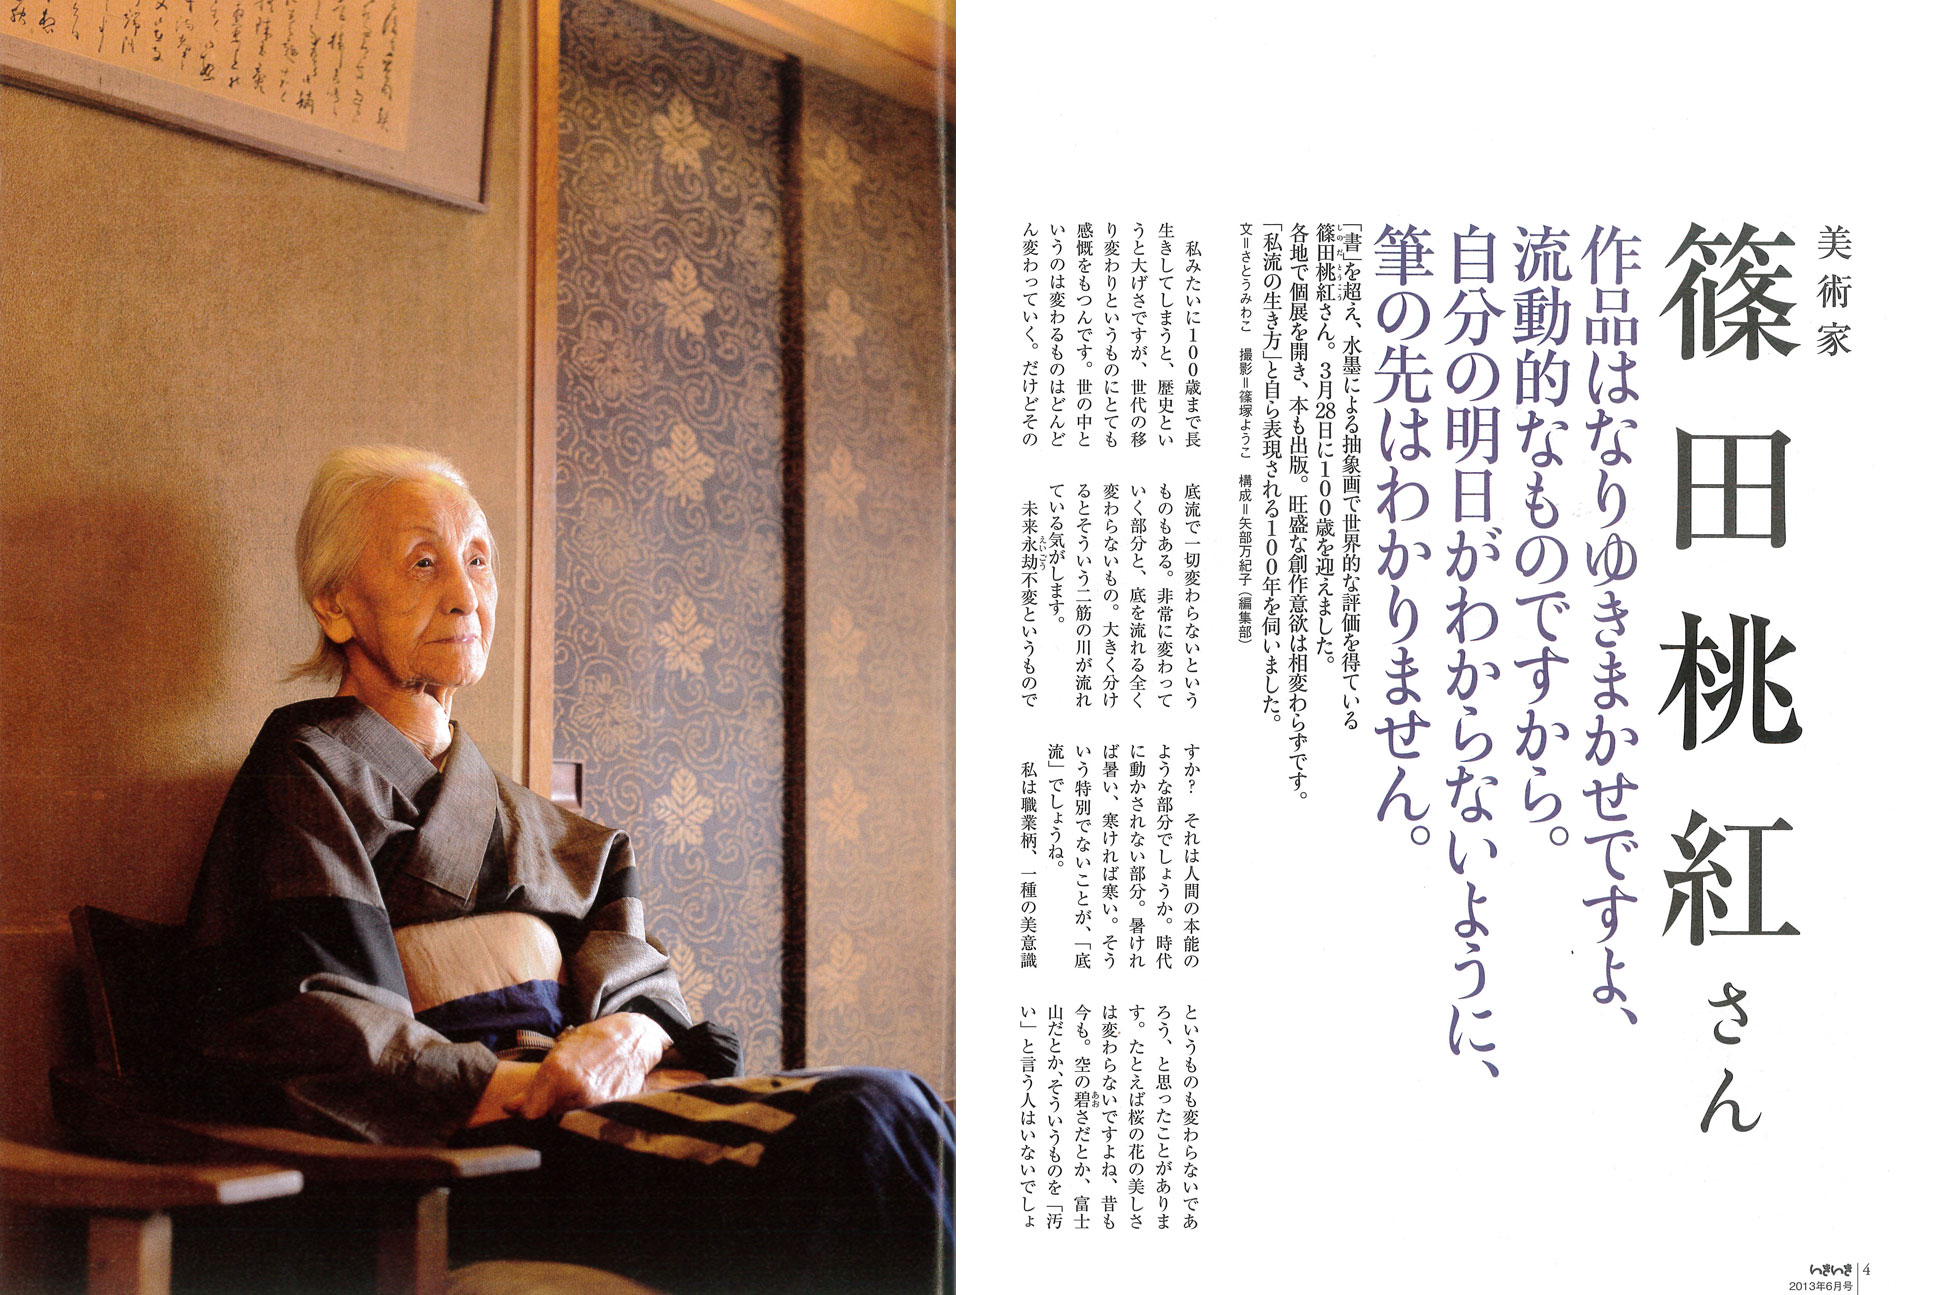 美術家
篠田桃紅さん
作品はなりゆきまかせですよ、
流動的なものですから。
自分の明日がわからないように、
筆の先はわかりません。
「書」を超え、水墨による抽象画で世界的な評価を得ている
篠田桃紅さん。3月28日に100歳を迎えました。
しのだとうこう
各地で個展を開き、本も出版。旺盛な創作意欲は相変わらずです。
「私流の生き方」と自ら表現される100年を伺いました。
文＝さとうみわこ　撮影＝篠塚ようこ　構成＝矢部万紀子（編集部）
私みたいに100歳まで長
生きしてしまうと、歴史とい
うと大げさですが、世代の移
り変わりというものにとても
感慨をもつんです。世の中と
いうのは変わるものはどんど
ん変わっていく。だけどその
底流で一切変わらないという
ものもある。非常に変わって
いく部分と、底を流れる全く
変わらないもの。大きく分け
るとそういう二筋の川が流れ
ている気がします。
未来永劫不変というもので
えいごう
すか？　それは人間の本能の
ような部分でしょうか。時代
に動かされない部分。暑けれ
ば暑い、寒ければ寒い。そう
いう特別でないことが、「底
流」でしょうね。
私は職業柄、一種の美意識
というものも変わらないであ
ろう、と思ったことがありま
す。たとえば桜の花の美しさ
は変わらないですよね、昔も
今も。空の碧さだとか、富士
あお
山だとか、そういうものを「汚
い」と言う人はいないでしょ
いきいき
2013年6月号
4